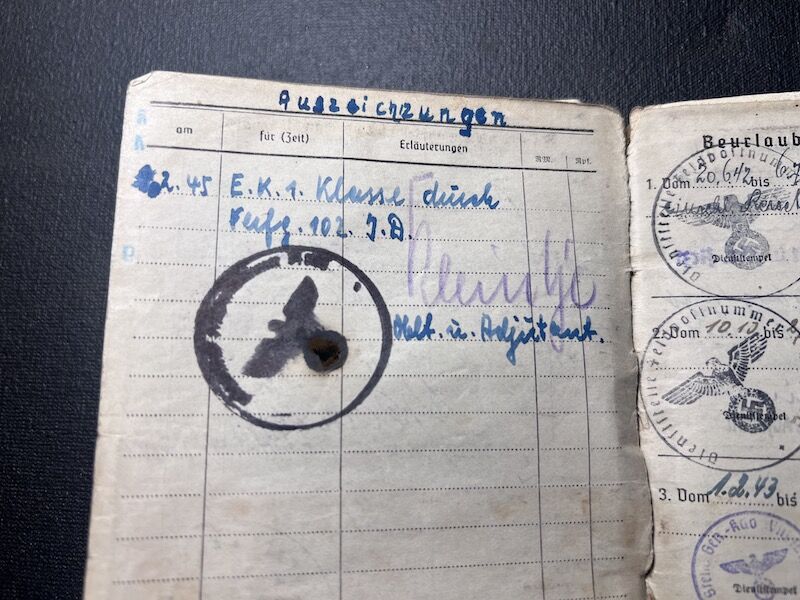 Auszeichnungen
am
für (Zeit)
Erläuterungen
RM.
Rpf.
2.45 E.K.1. Klasse durch
Verfg. 102. J.D.
Oblt. u. Adjutant.
Beurlaub
1. Vom 20.6.42 bis
Dienststempel
Dienststelle Feldpostnummer
2. Vom 10.13 bis
Dienststempel
Dienststelle Feldpostnummer
3. Vom 1.2.43 bis
Dienststempel